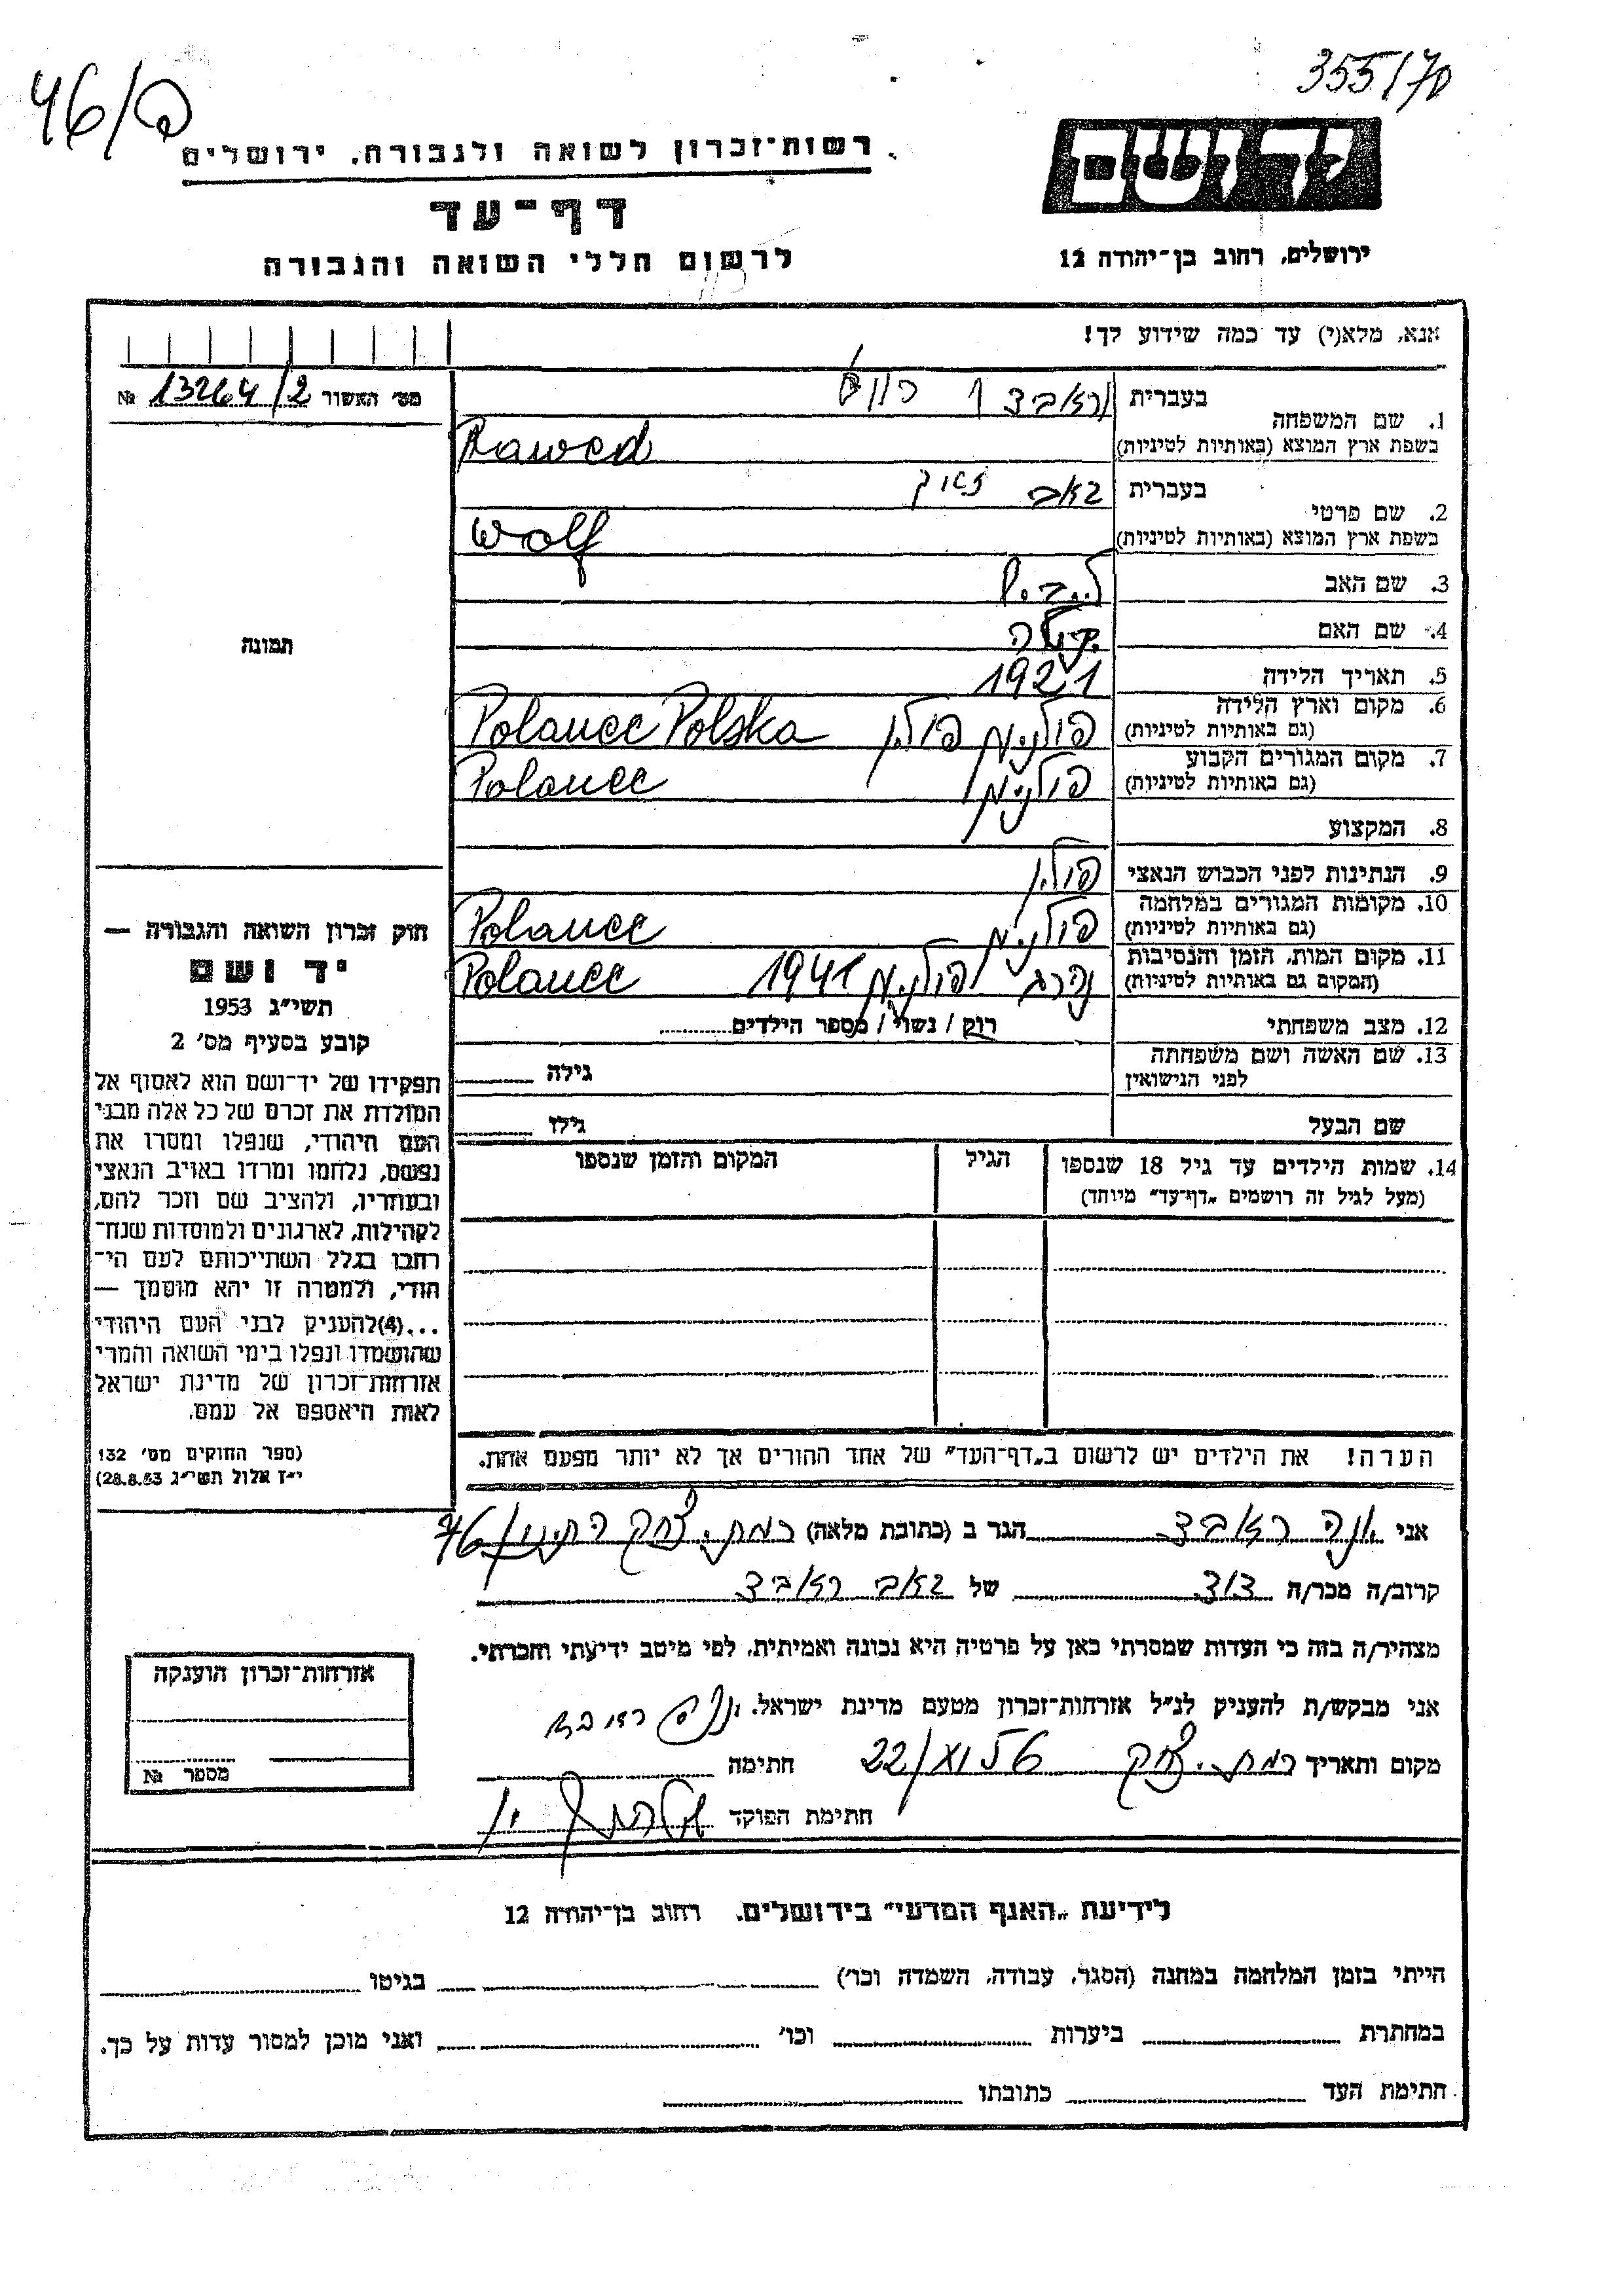 46/ס
355/70
רשות־זכרון לשואה ולגבורה, ירושלים
יד ושם
דף־עד
לרשום חללי השואה והגבורה
ירושלים, רחוב בן־יהודה 12
אנא, מלא(י) עד כמה שידוע לך!
מס׳ האשור 13264/2 №
1. שם המשפחה
בעברית ראבצ
בשפת ארץ המוצא (באותיות לטיניות) Rawed
2. שם פרטי
בעברית זאב
בשפת ארץ המוצא (באותיות לטיניות) Wolf
3. שם האב
4. שם האם
תמונה
5. תאריך הלידה 1921
6. מקום וארץ הלידה
(גם באותיות לטיניות) פולניץ פולין Polanec Polska
7. מקום המגורים הקבוע
(גם באותיות לטיניות) פולניץ Polanec
8. המקצוע
9. הנתינות לפני הכבוש הנאצי פולין
10. מקומות המגורים במלחמה
(גם באותיות לטיניות) פולניץ Polanec
11. מקום המות, הזמן והנסיבות
(המקום גם באותיות לטיניות) נהרג פולניץ 1941 Polanec
12. מצב משפחתי רוק / נשוי / מספר הילדים
13. שם האשה ושם משפחתה
לפני הנישואין גילה
שם הבעל גילו
14. שמות הילדים עד גיל 18 שנספו הגיל המקום והזמן שנספו
(מעל לגיל זה רושמים „דף־עד״ מיוחד)
חוק זכרון השואה והגבורה —
יד ושם
תשי״ג 1953
קובע בסעיף מס׳ 2
תפקידו של יד־ושם הוא לאסוף אל
המולדת את זכרם של כל אלה מבני
העם היהודי, שנפלו ומסרו את
נפשם, נלחמו ומרדו באויב הנאצי
ובעוזריו, ולהציב שם וזכר להם,
לקהילות, לארגונים ולמוסדות שנח־
רחבו בגלל השתייכותם לעם הי־
הודי, ולמטרה זו יהא מוסמך —
...(4)להעניק לבני העם היהודי
שהושמדו ונפלו בימי השואה והמרי
אזרחות־זכרון של מדינת ישראל
לאות היאספם אל עמם.
(ספר החוקים מס׳ 132
י״ז אלול תשי״ג 28.8.53)
הערה! את הילדים יש לרשום ב„דף־העד״ של אחד ההורים אך לא יותר מפעם אחת.
אני ראבצ הגר ב (כתובת מלאה) רמת יצחק 46/
קרוב/ה מכר/ה דוד של זאב ראבצ
מצהיר/ה בזה כי העדות שמסרתי כאן על פרטיה היא נכונה ואמיתית, לפי מיטב ידיעתי והכרתי.
אני מבקש/ת להעניק לנ״ל אזרחות־זכרון מטעם מדינת ישראל.
מקום ותאריך רמת יצחק 22/XI 56 חתימה
חתימת הפוקד
אזרחות־זכרון הוענקה
מספר №
לידיעת „האגף המדעי״ בירושלים, רחוב בן־יהודה 12
הייתי בזמן המלחמה במחנה (הסגר, עבודה, השמדה וכו׳) בגיטו
במחתרת ביערות וכו׳ ואני מוכן למסור עדות על כך.
חתימת העד כתובתו